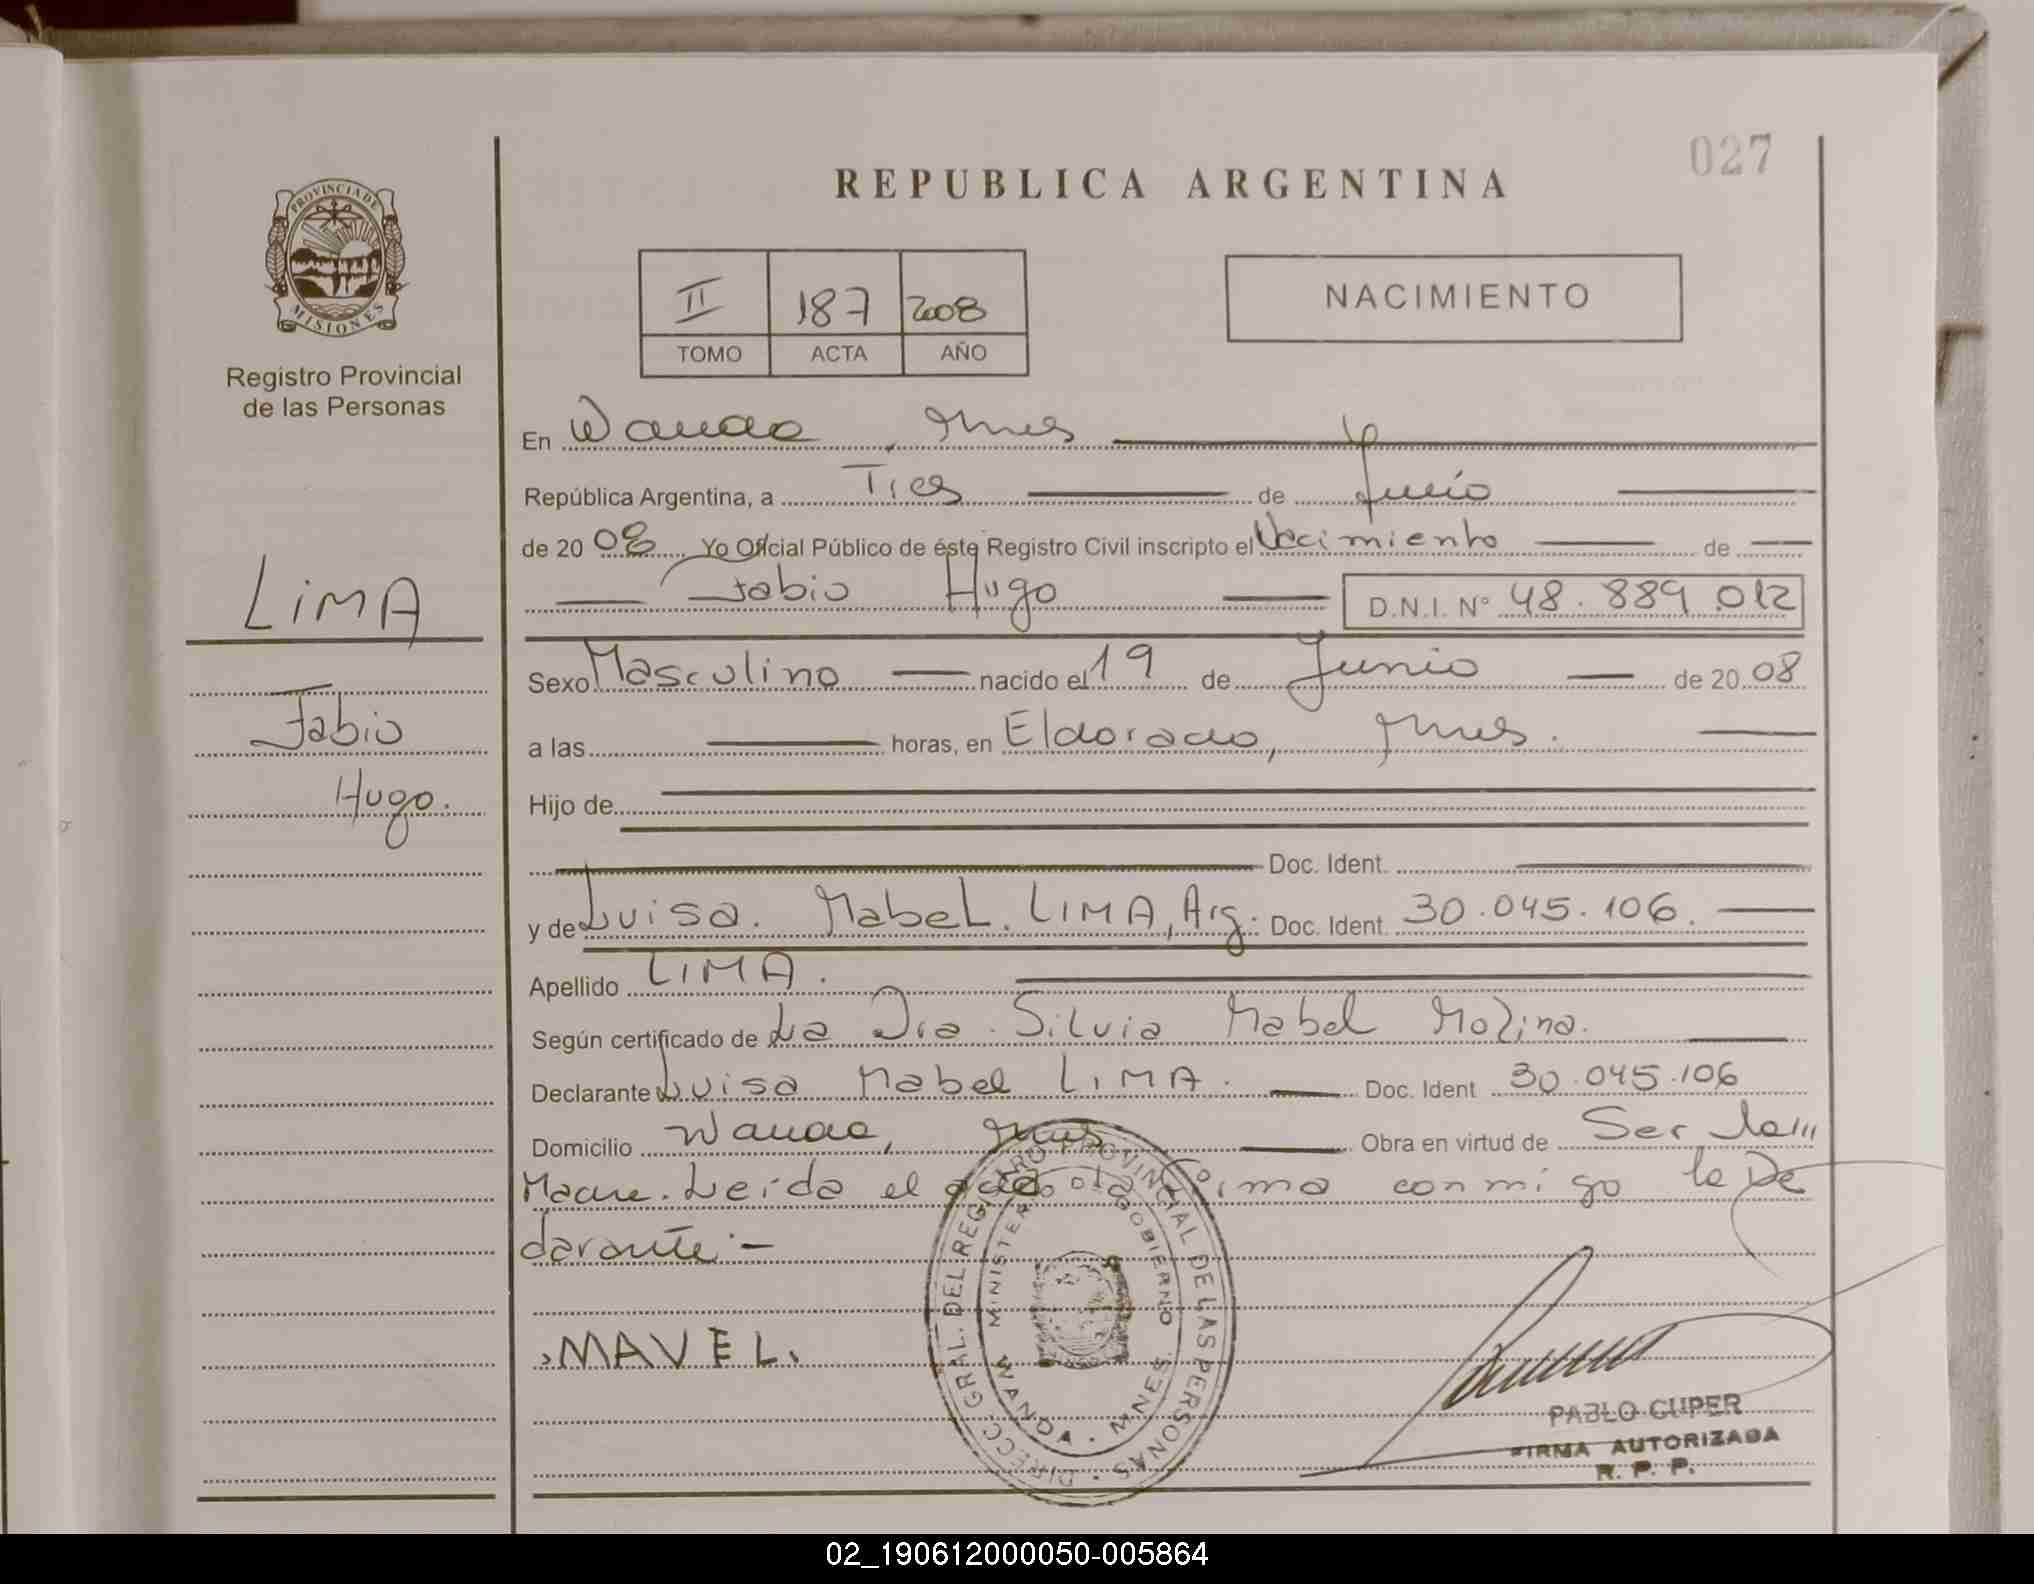 027
REPUBLICA ARGENTINA
PROVINCIA DE
MISIONES
Registro Provincial
de las Personas
II 187 2008
TOMO ACTA AÑO
NACIMIENTO
En Wanda, Mnes
República Argentina, a Tres de
de 20 08 Yo Oficial Público de éste Registro Civil inscripto el Nacimiento de
Fabio Hugo D.N.I. N° 48.889.012
LIMA
Fabio
Hugo.
Sexo Masculino nacido el 19 de Junio de 20 08
a las horas, en Eldorado, Mnes.
Hijo de
Doc. Ident.
y de Luisa. Mabel. LIMA, Arg. Doc. Ident. 30.045.106.
Apellido LIMA.
Según certificado de La Dra. Silvia Mabel Molina.
Declarante Luisa Mabel LIMA. Doc. Ident 30.045.106
Domicilio Wanda, Mnes Obra en virtud de Ser la
Madre. Leida el acta la firma conmigo la De
clarante.-
MAVEL.
DIRECC. GRAL. DEL REGISTRO PROVINCIAL DE LAS PERSONAS
MINISTERIO GOBIERNO
WANDA - MNES.
PABLO CUPER
FIRMA AUTORIZADA
R. P. P.
02_190612000050-005864